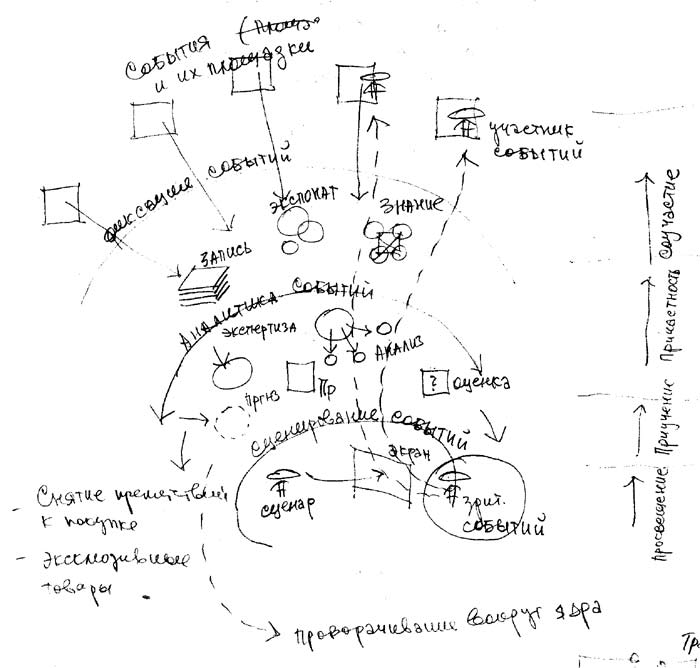 СОБЫТИЯ
и их площадки
участник
событий
фиксация событий
ЭКСПОНАТ
ЗНАНИЕ
ЗАПИСЬ
АНАЛИТИКА СОБЫТИЙ
ЭКСПЕРТИЗА
АНАЛИЗ
ПРГНЗ
ПР
?
оценка
сценирование событий
экран
сценар
зрит.
событий
- Снятие препятствий
к покупке
- Эксклюзивные
товары
Проворачивание вокруг ядра
Соучастие
Причастность
Приучение
Просвещение